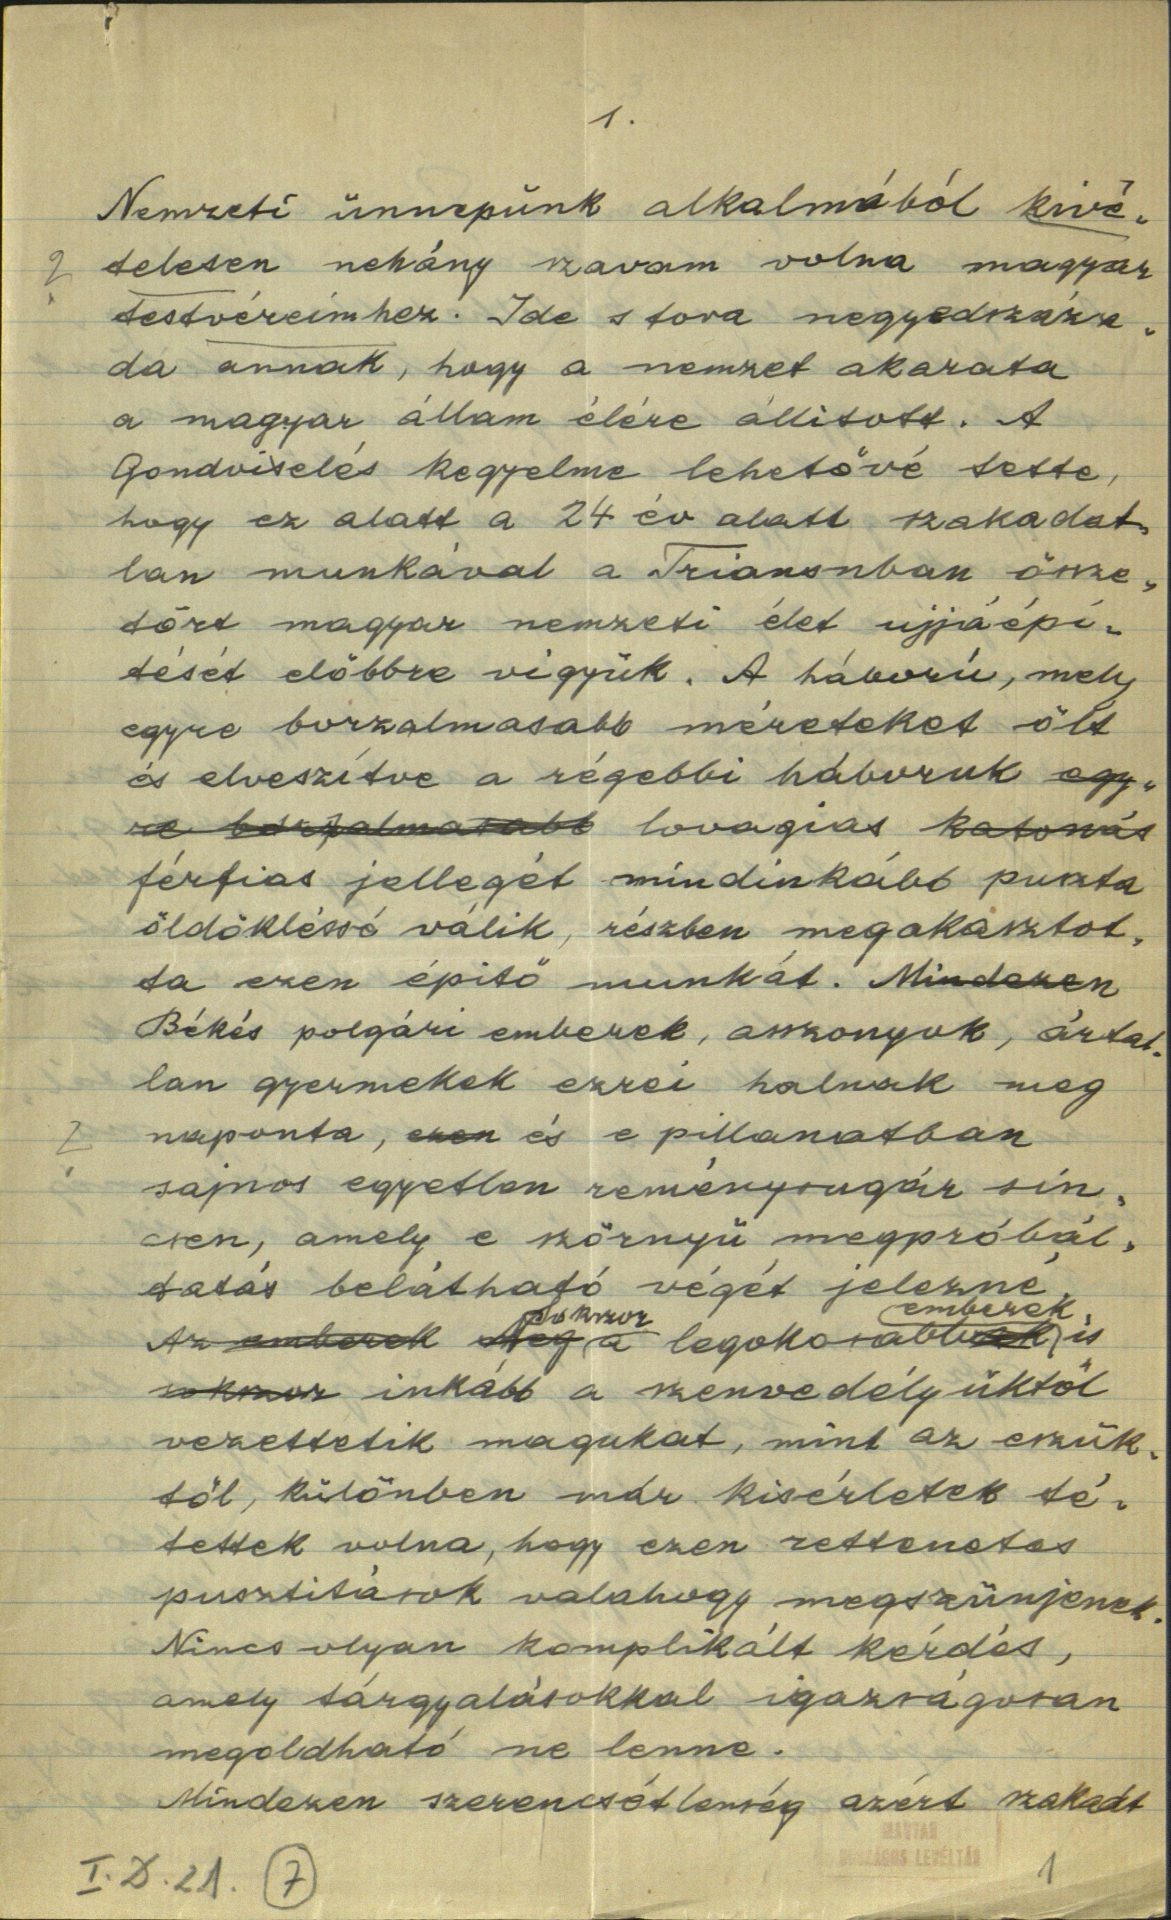 1.
Nemzeti ünnepünk alkalmából kivé-
telesen nehány szavam volna magyar
testvéreimhez. Ide s tova negyedszáza-
da annak, hogy a nemzet akarata
a magyar állam élére állitott. A
Gondviselés kegyelme lehetővé tette,
hogy ez alatt a 24 év alatt szakadat-
lan munkával a Trianonban össze-
tört magyar nemzeti élet ujjáépi-
tését előbbre vigyük. A háború, mely
egyre borzalmasabb méreteket ölt
és elveszítve a régebbi háboruk egy-
re borzalmasabb lovagias katonás
férfias jellegét mindinkább puszta
öldökléssé válik, részben megakasztot-
ta ezen épitő munkát. Mindezen
Békés polgári emberek, asszonyok, ártat-
lan gyermekek ezrei halnak meg
naponta, ezen és e pillanatban
sajnos egyetlen reménysugár sin-
csen, amely e szörnyű megpróbál-
tatás belátható végét jelezné.
sokszor emberek
Az emberek meg a legokosabbak is
sokszor inkább a szenvedélyüktől
vezettetik magukat, mint az eszük-
től, különben már kisérletek té-
tettek volna, hogy ezen rettenetes
pusztitások valahogy megszünjenek.
Nincs olyan komplikált kérdés,
amely tárgyalásokkal igazságosan
megoldható ne lenne.
Mindezen szerencsétlenség azért szakadt
MAGYAR
ORSZÁGOS LEVÉLTÁR
I. D. 21. 7
1